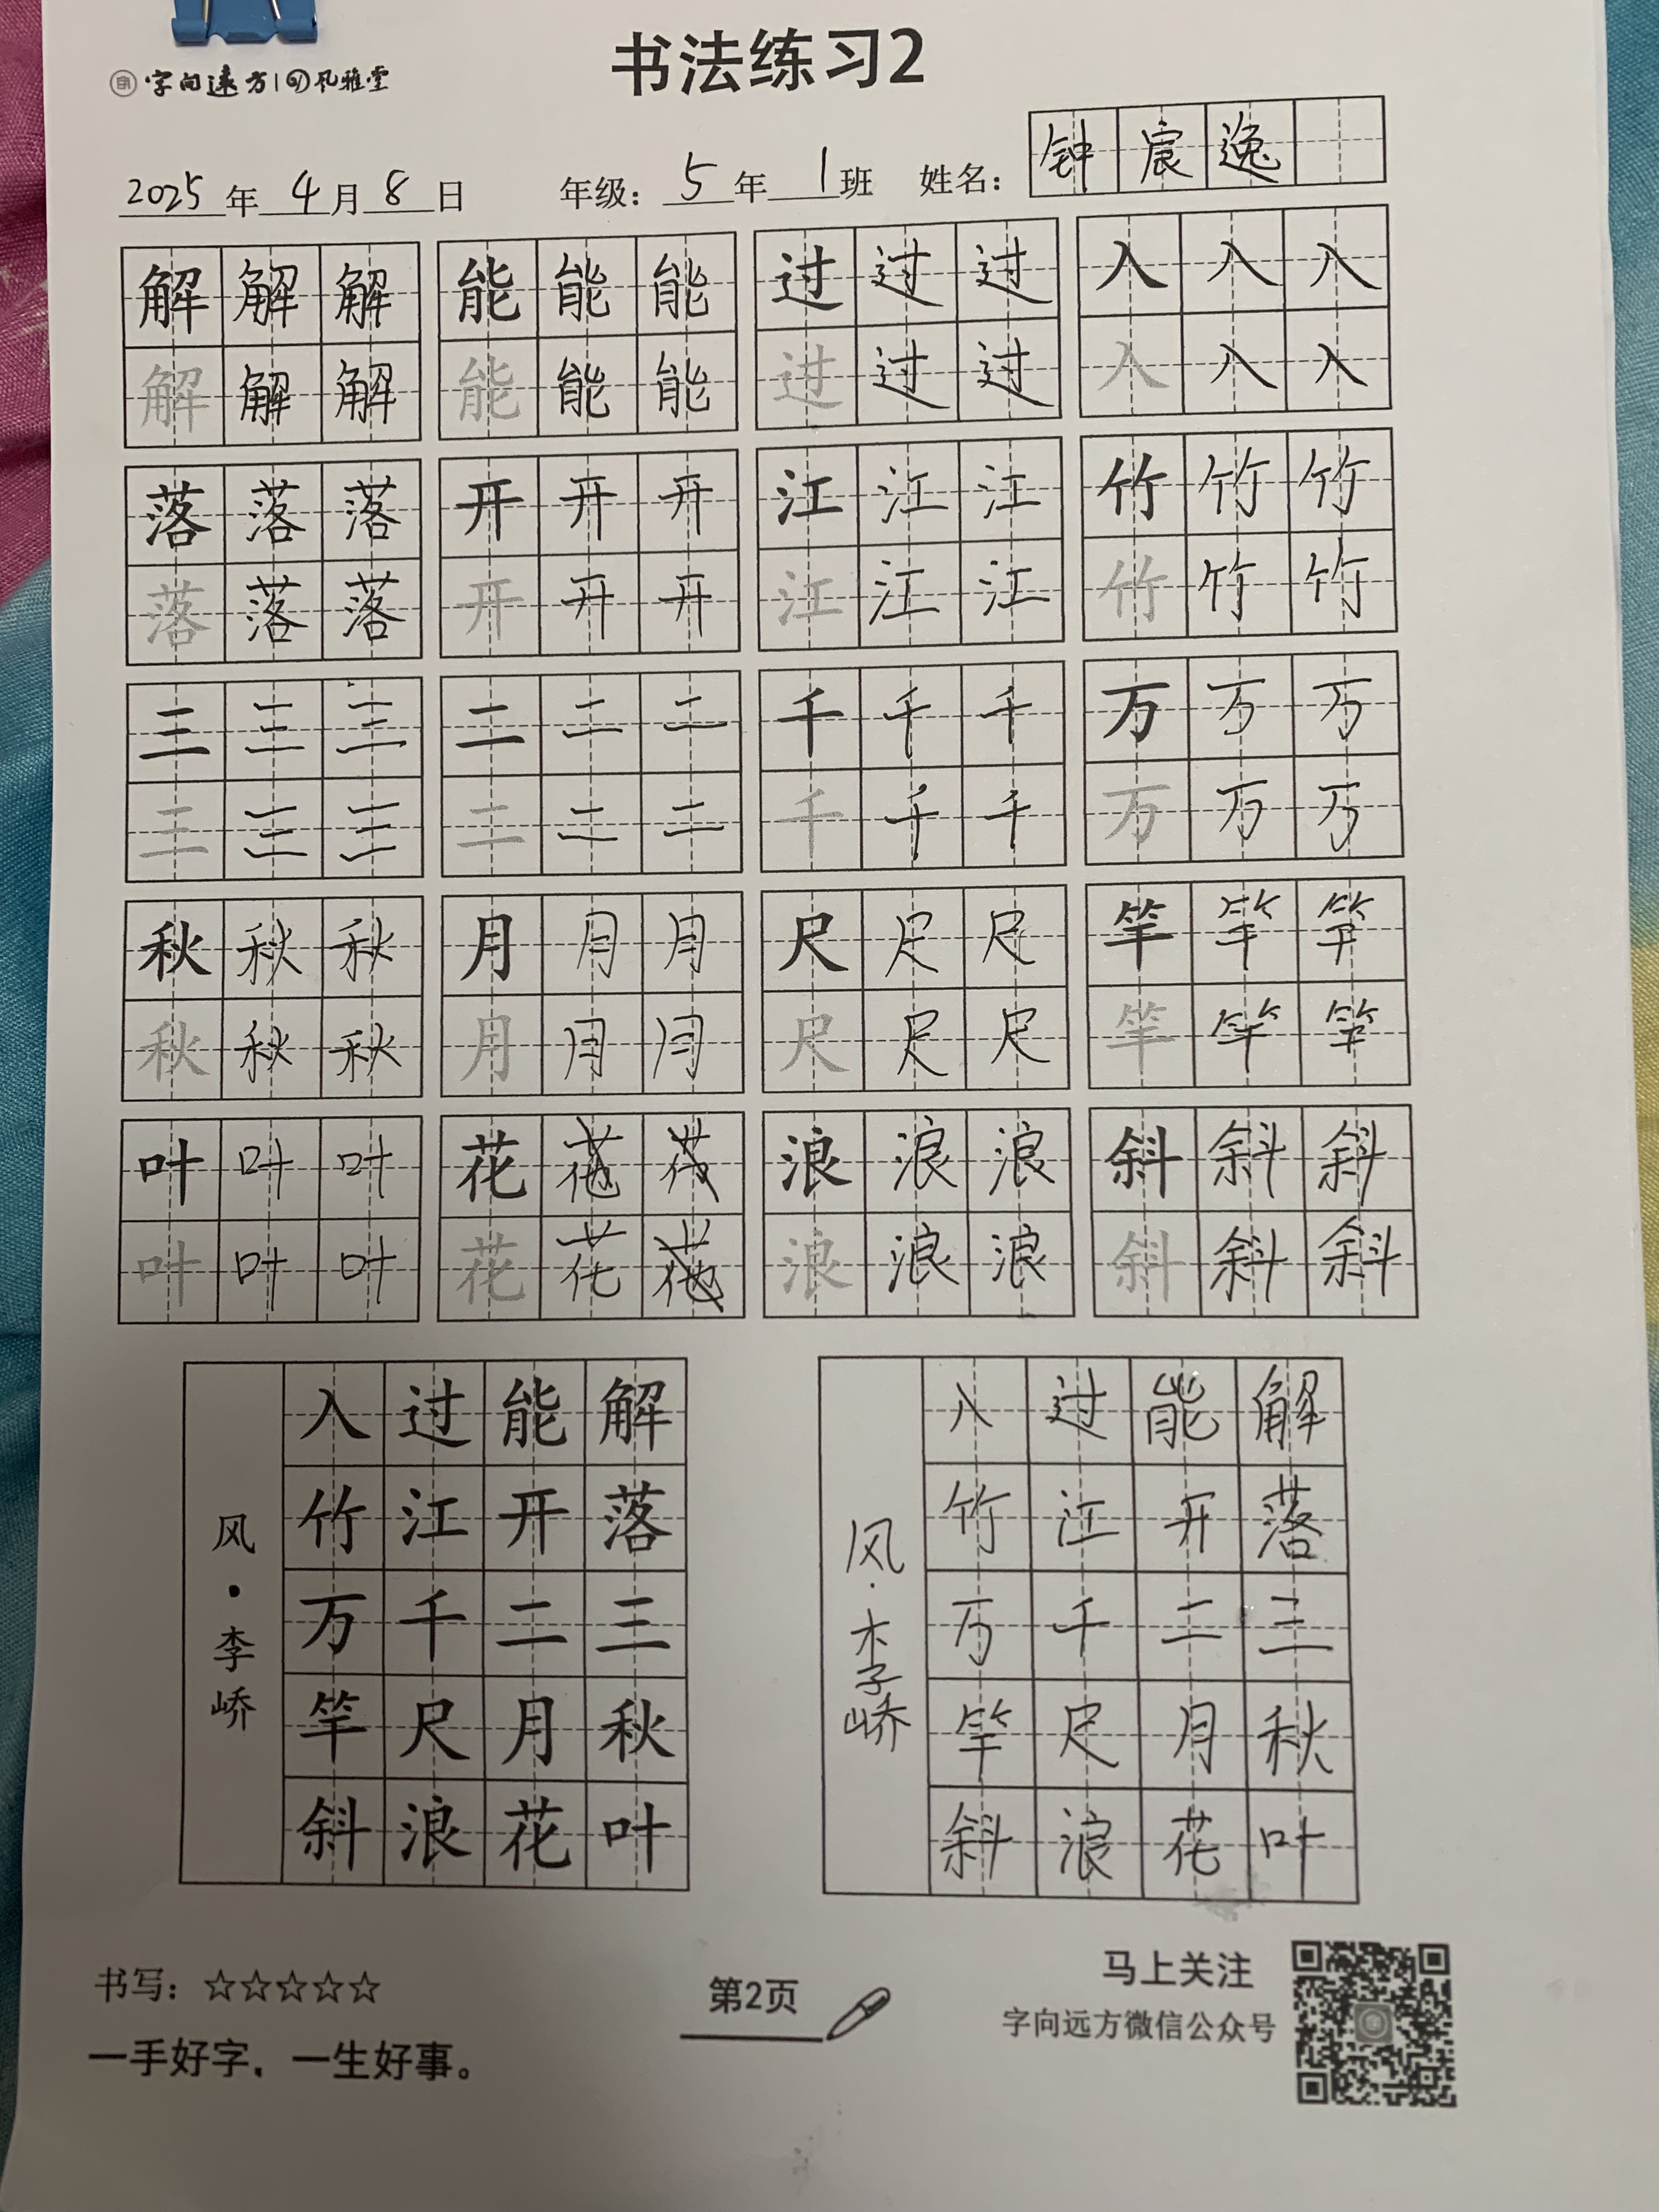 字向远方 | 风雅堂
书法练习2
2025年4月8日 年级：5年1班 姓名：钟宸逸
解解解 能能能 过过过 入入入
解解解 能能能 过过过 入入入
落落落 开开开 江江江 竹竹竹
落落落 开开开 江江江 竹竹竹
三三三 二二二 千千千 万万万
三三三 二二二 千千千 万万万
秋秋秋 月月月 尺尺尺 竿竿竿
秋秋秋 月月月 尺尺尺 竿竿竿
叶叶叶 花 浪浪浪 斜斜斜
叶叶叶 花花 浪浪浪 斜斜斜
解落三秋叶
能开二月花
过江千尺浪
入竹万竿斜
风·李峤
解落三秋叶
能开二月花
过江千尺浪
入竹万竿斜
风·李峤
书写：☆☆☆☆☆
一手好字，一生好事。
第2页
马上关注
字向远方微信公众号